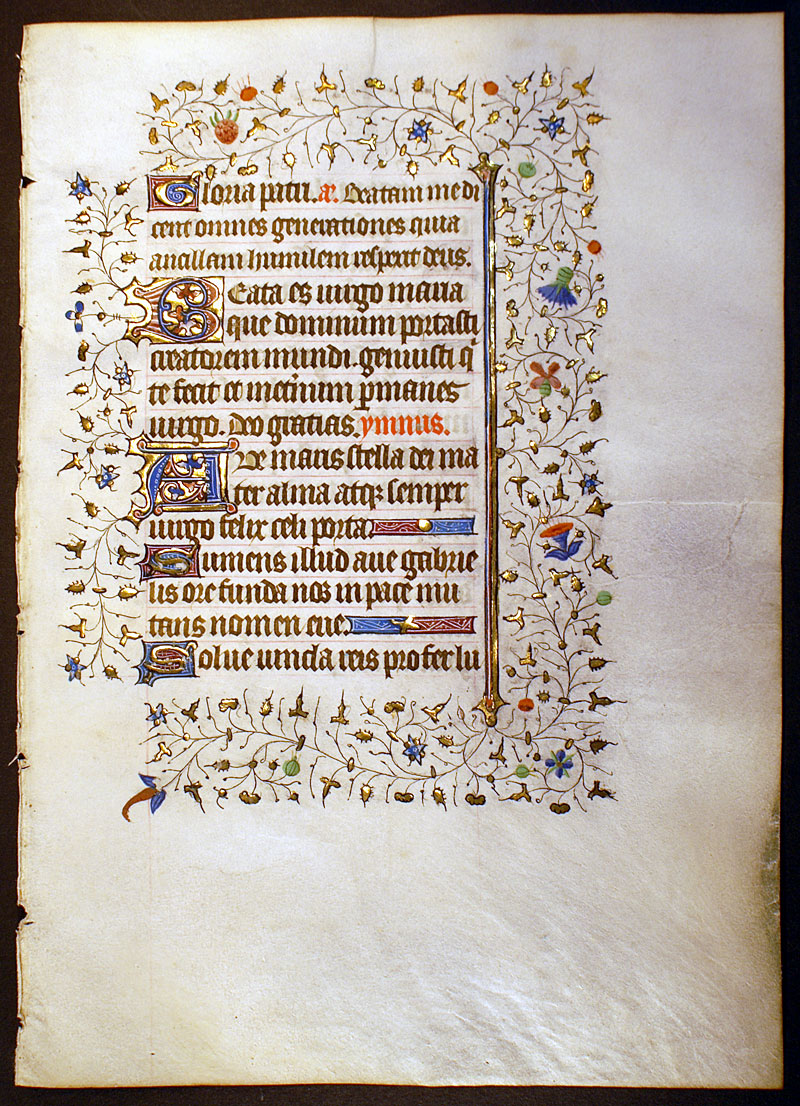 Gloria patri. añ. Beatam me di
cent omnes generationes quia
ancillam humilem respexit deus.
Beata es uirgo maria
que dominum portasti
creatorem mundi. genuisti q̇
te fecit et inet̾num p̱manes
uirgo. Deo gratias. ymnus.
Aue maris stella dei ma
ter alma atqꝫ semper
uirgo felix celi porta.
Sumens illud aue gabrie
lis ore funda nos in pace mu
tans nomen eue.
Solue uincla reis profer lu